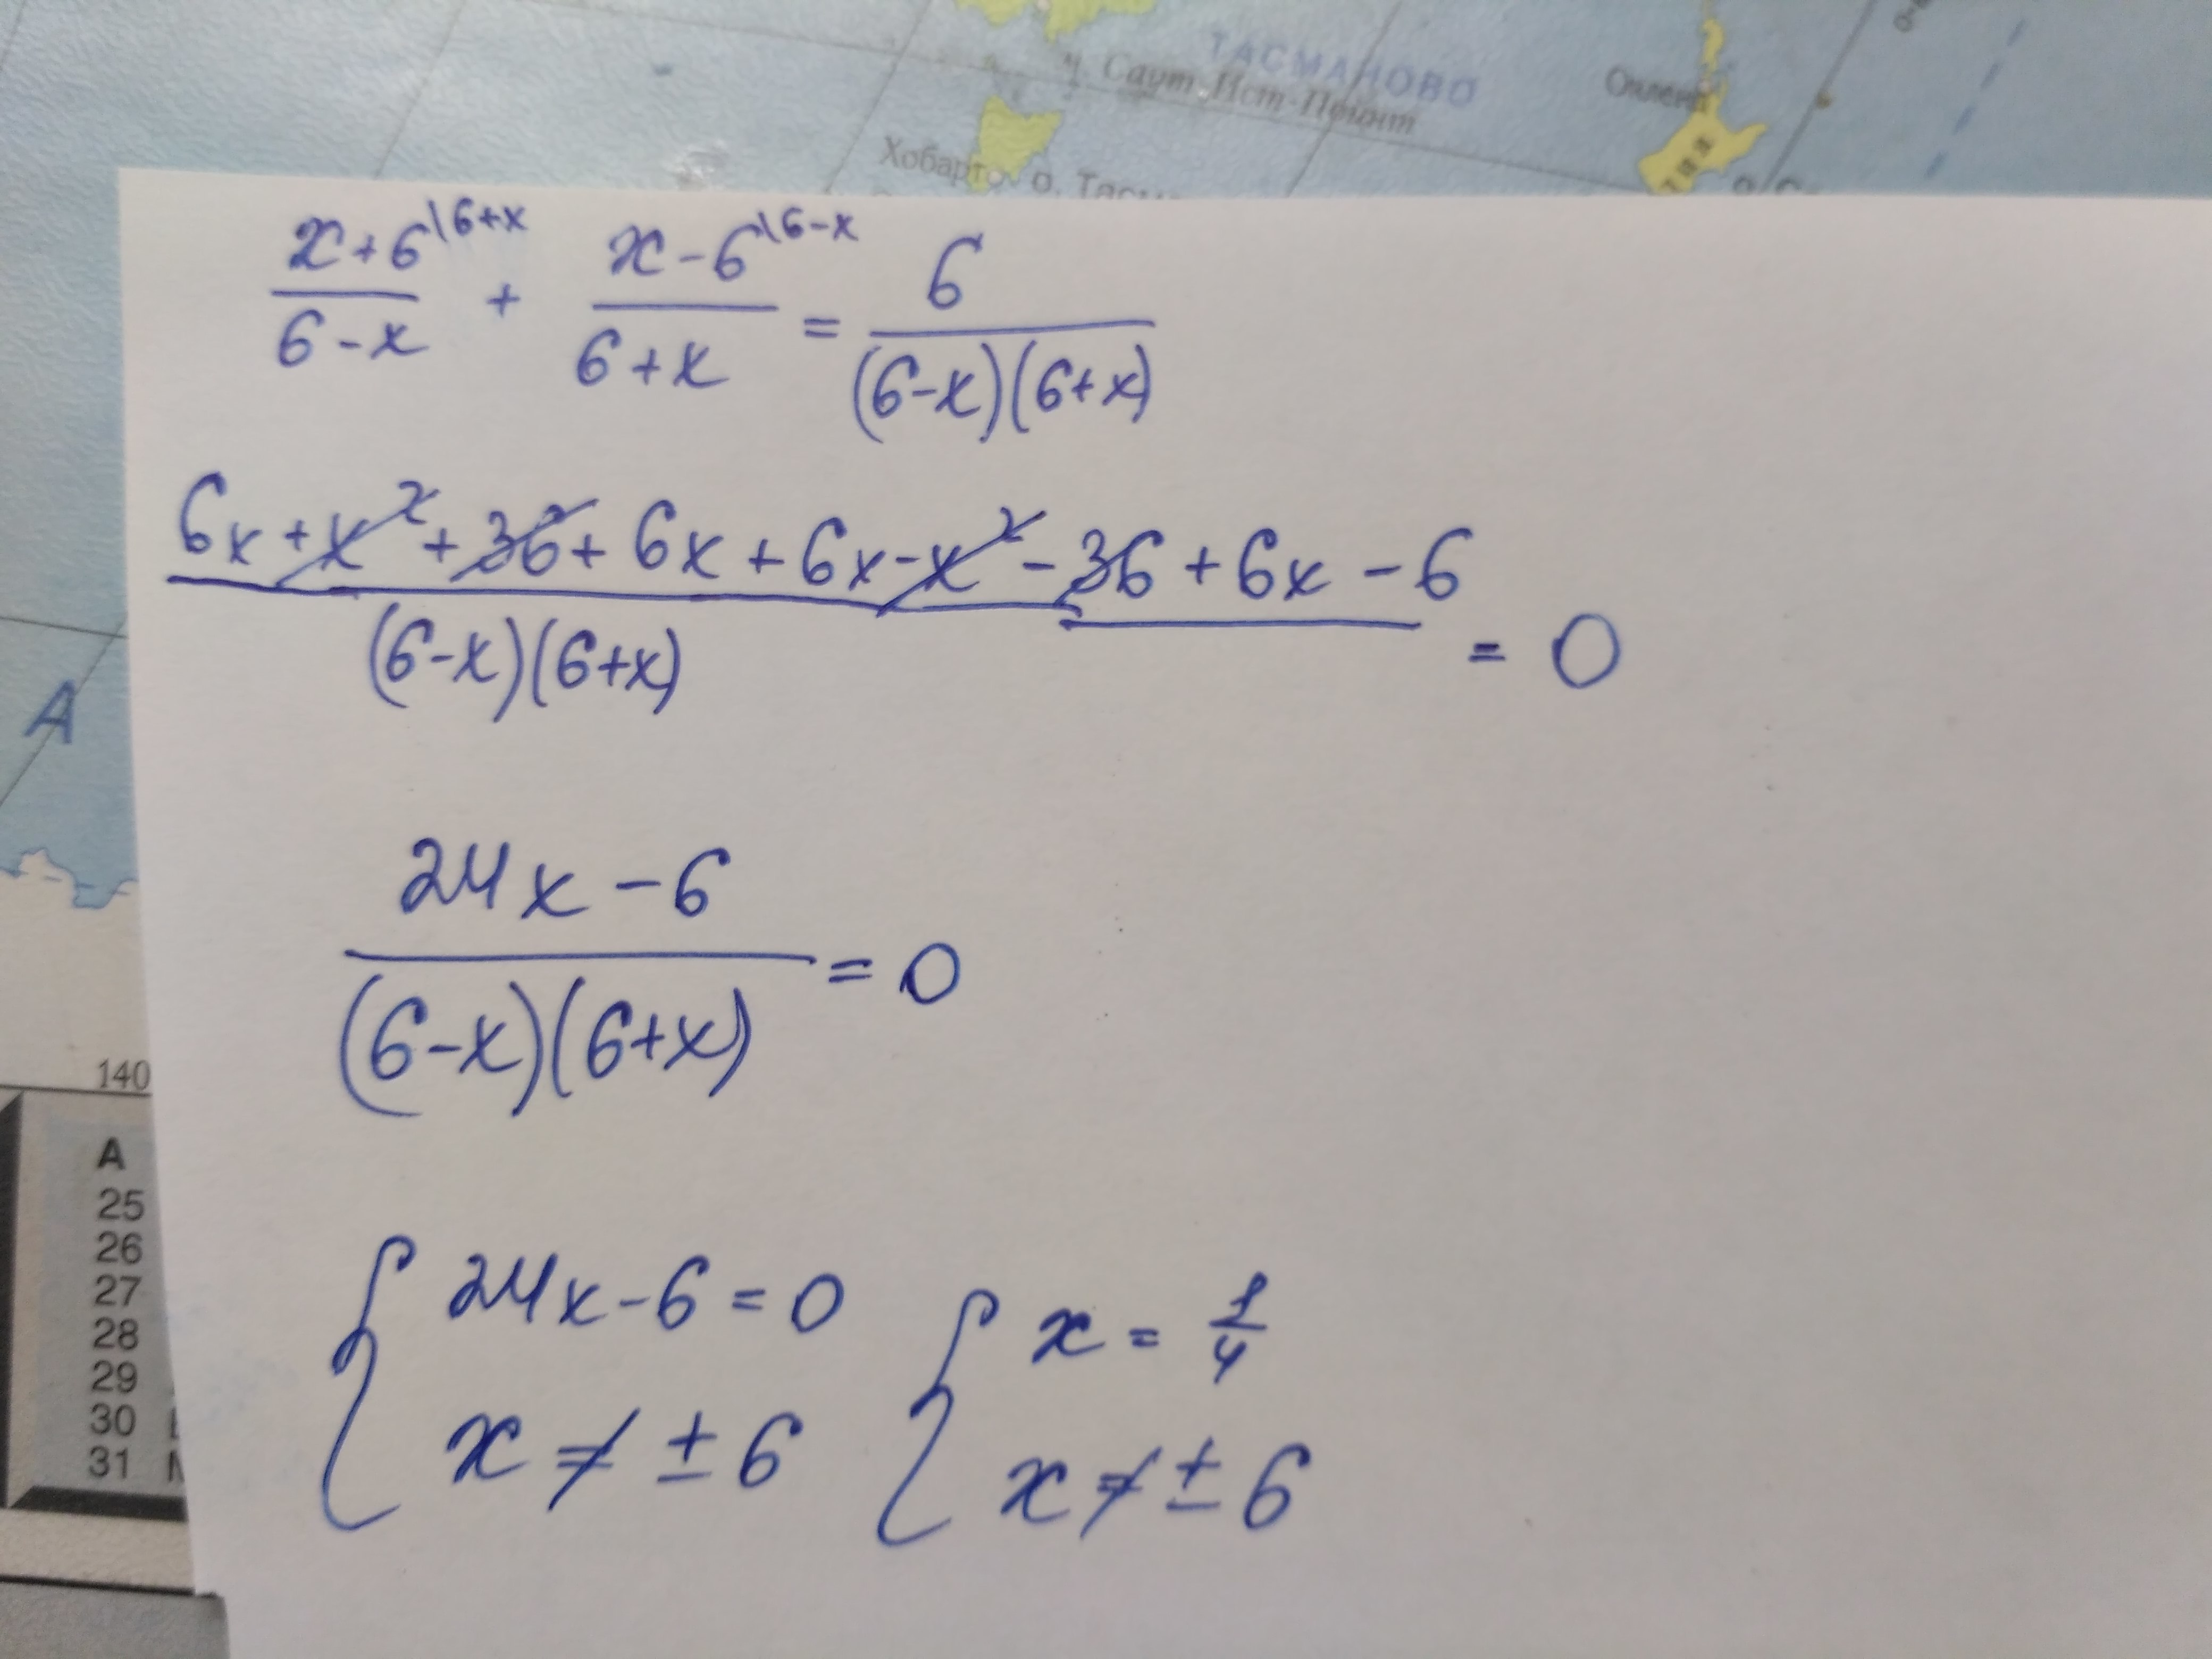 ТАСМАНОВО
Саут-Ист-Пойнт
Хобарт о. Тасм
x+6\6+x / 6-x + x-6\6-x / 6+x = 6 / (6-x)(6+x)
6x+x²+36+6x+6x-x²-36+6x-6 / (6-x)(6+x) = 0
А
24x-6 / (6-x)(6+x) = 0
140
A
25
26
27
28
29
30
31
{ 24x-6=0 { x = 1/4
x ≠ ±6 x ≠ ±6